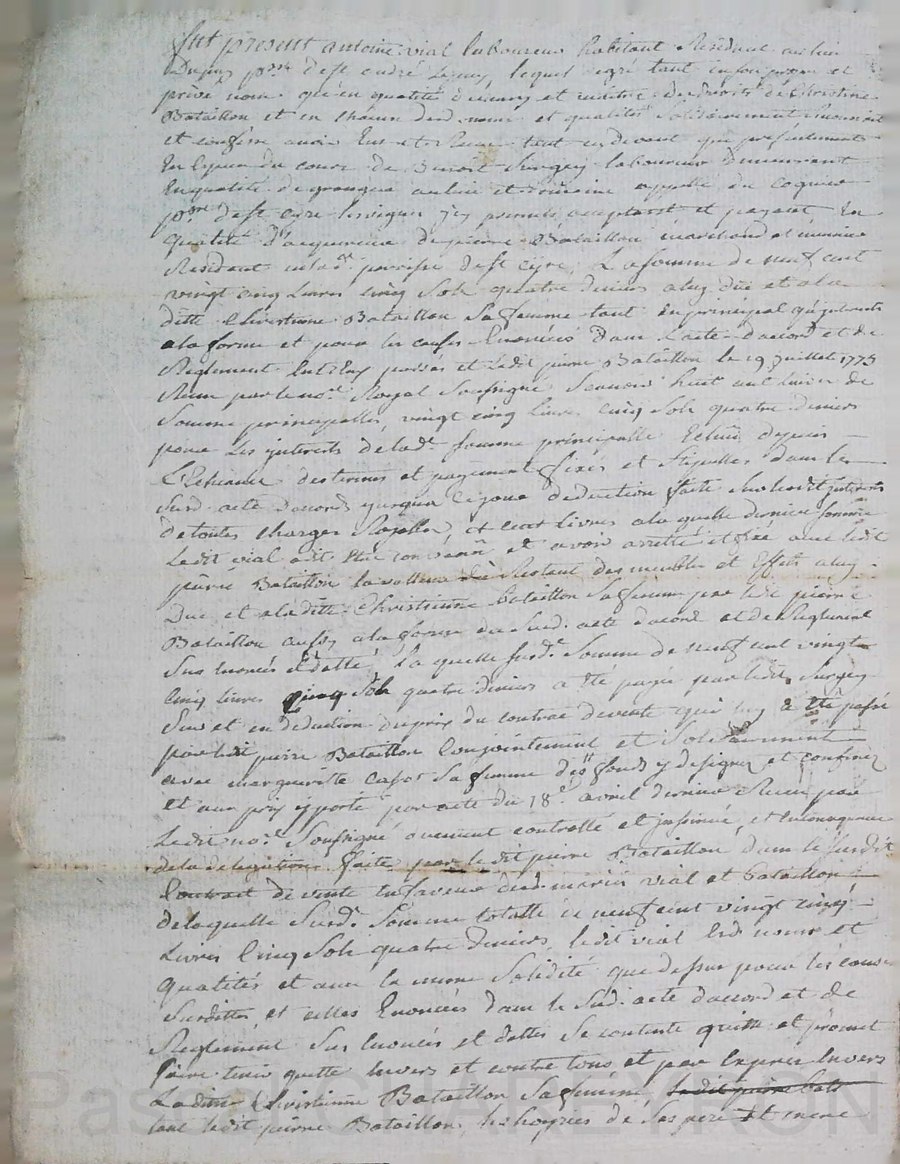 fut present antoine vial laboureur habitant Résident au lieu
Dupuy p.sse de st andré Lepuy, lequel agré tant en son propre et
privé nom qu'en qualité de mary et maitre des droits de Christine
Bataillon et en chacun desd. noms et qualités solidairement Reconnait
et confesse avoir Eu et Receu tant cy devant que présentement
En Espece du cours de Benoit Surgey laboureur Demeurant
En qualité de granger au lieu et domaine appellé du
p.sse de st cyre les vignes icy present, acceptant et payant En
qualité d'acquereur de pierre Bataillon marchand et
Résident au paroisse de st Cyre, La somme de neuf cent
vingt cinq Livres cinq Sols quatre deniers a luy due et a la
ditte Christinne Bataillon Sa femme tant En principal qu'interests
a la forme et pour les causes Enoncées dans L'acte d'acord et de
Reglement Entr'Eux passés et ledit pierre Bataillon le 19 Juillet 1775
Receu par le no.re Royal Soussigné Scavoir huit cent Livres de
Somme principalle, vingt cinq Livres cinq Sols quatre deniers
pour Les interests de lad. somme principalle Echus depuis
L'Echéance des termes et payement fixés et stipullés dans le
Susd. acte d'acord jusqua ce jour deduction faite Sur lesdit interests
de toutes charges Royalles, et cent Livres a la quelle derniere somme
Ledit vial a dit et avoir arretté et fixé avec ledit
pierre Bataillon la valleur du Restant des meubles et Effets a luy
Due et a la ditte Christinne Bataillon Sa femme par ledit pierre
Bataillon aussy a la forme du Susd. acte d'acord et de Reglement
Sus Enoncés et datté, La quelle susd.e Somme de neuf cent vingt
cinq livres cinq Sols quatre deniers a été payée par ledit Surgey
Sur et en deduction du prix du contrat de vente qui luy a été passé
par ledit pierre Bataillon Conjointement et Solidairement
avec margueritte Sa femme des fonds y designés et confinés
et au prix y porté par acte du 18.e avril dernier Receu par
Ledit no.re Soussigné duement controllé et insinué, et En consequence
de la delegation faite par ledit pierre Bataillon dans le Susdit
Contrat de vente En faveur desd. mariés vial et bataillon
de laquelle Susd. Somme totalle de neuf cent vingt cinq
Livres Cinq Sols quatre deniers, ledit vial Esd. noms et
qualités et avec la meme Solidité que dessus pour les causes
Susdittes et celles Enoncées dans le Susd. acte d'acord et de
Reglement Sus Enoncés et dattés Se contente quitte et promet
faire tenir quitte Envers et contre tous et par Exprès Envers
Laditte Christinne Bataillon Sa femme,
tant ledit pierre Bataillon, les hoyries de Ses pere et mere
Pascal CHAREYRON